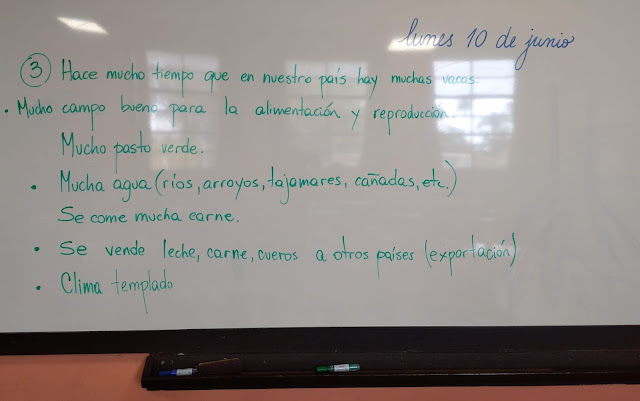 lunes 10 de junio
③ Hace mucho tiempo que en nuestro país hay muchas vacas.
• Mucho campo bueno para la alimentación y reproducción.
Mucho pasto verde.
• Mucha agua (ríos, arroyos, tajamares, cañadas, etc.)
Se come mucha carne.
• Se vende leche, carne, cueros a otros países (exportación)
• Clima templado